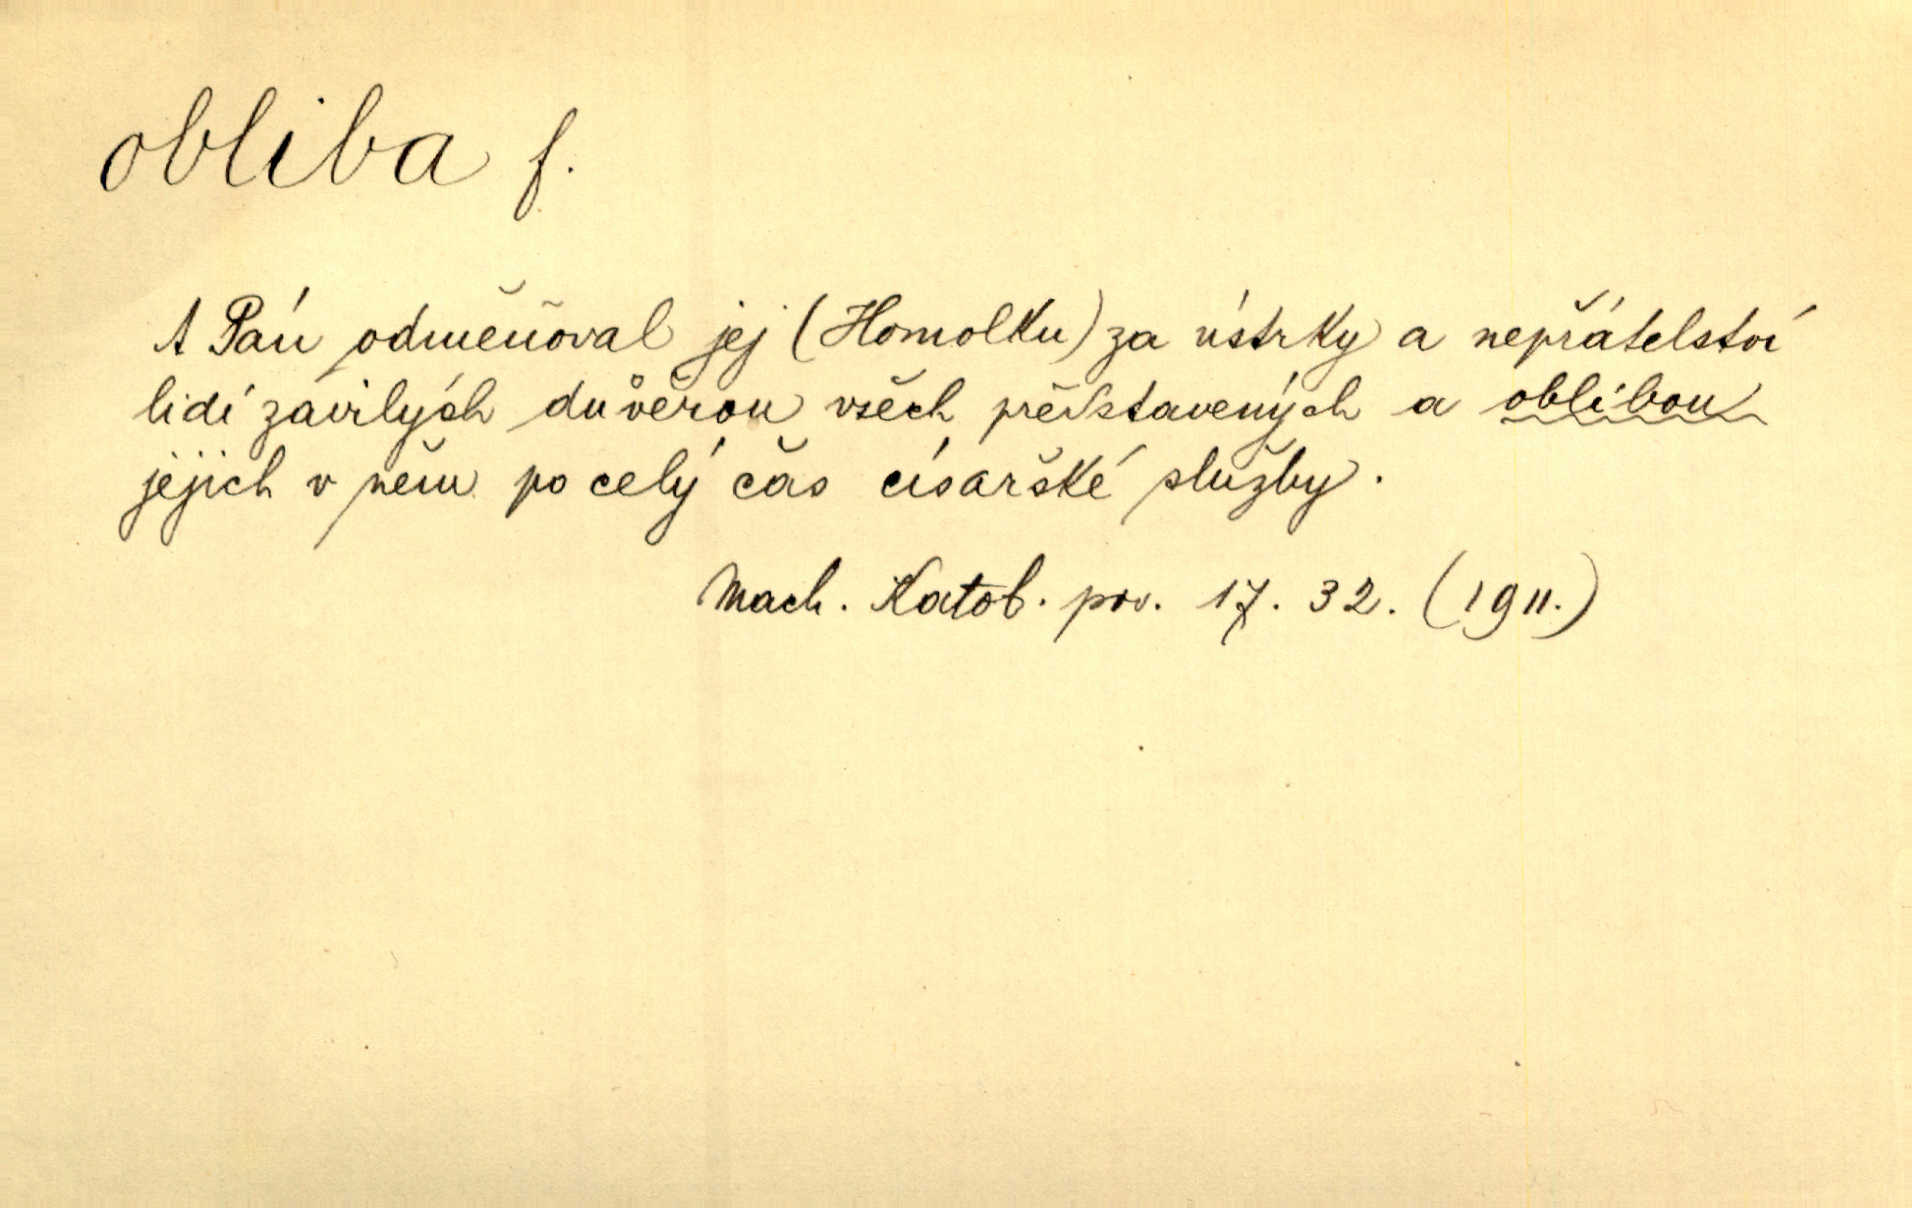 obliba f.
A Pán odměňoval jej (Homolku) za ústrky a nepřátelství
lidí zavilých důvěrou všech představených a oblibou
jejich v něm po celý čas císařské služby.
Mach. Katob. pov. 17. 32. (1911.)